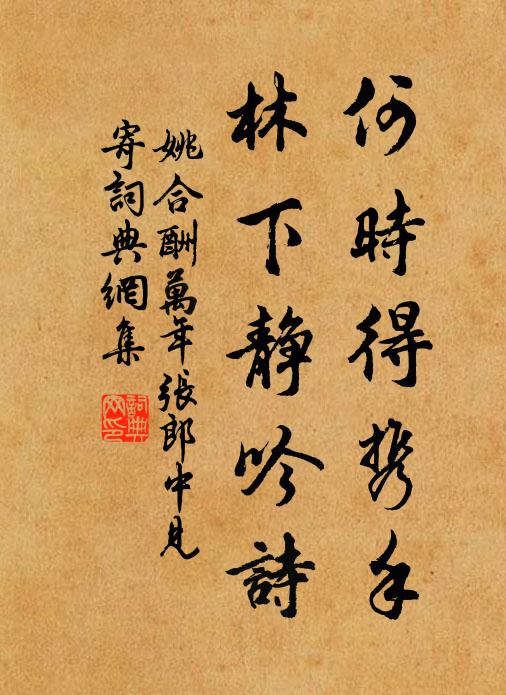 何時得携手
林下静吟詩
姚合酬萬年張郎中見
寄詞典網集
詞典
网印